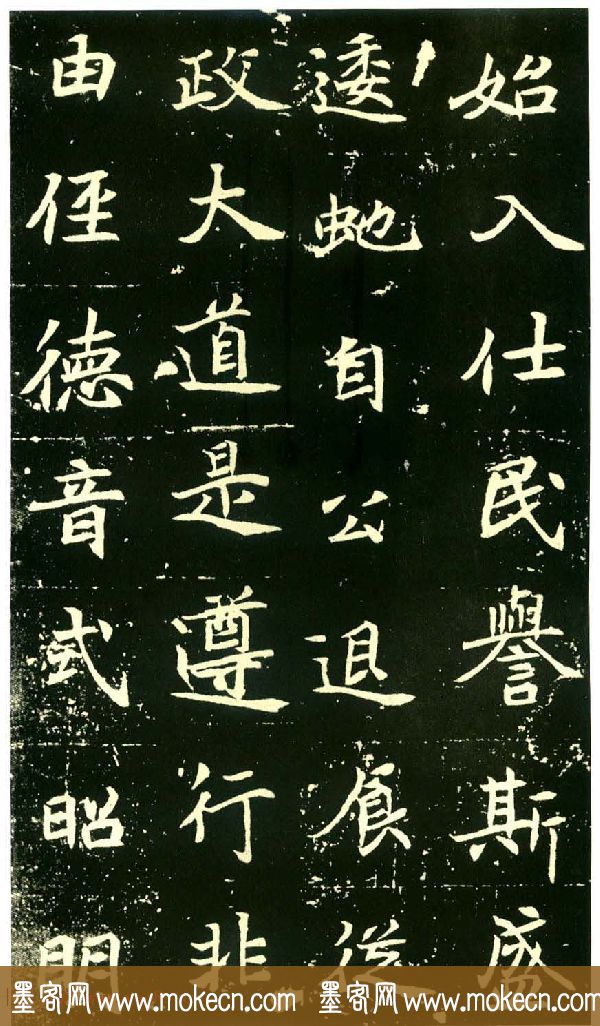 始入仕民譽斯盛
逶虵自公退食從
政大道是遵行非
由徑德音式昭明
墨客网 www.mokecn.com 墨客网 www.mokecn.com